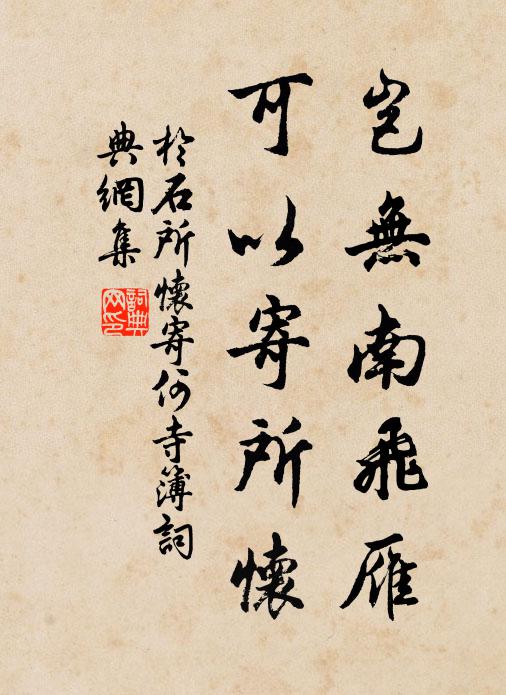 豈無南飛雁
可以寄所懷
於石所懷寄何寺簿詞
典網集
詞典
网印